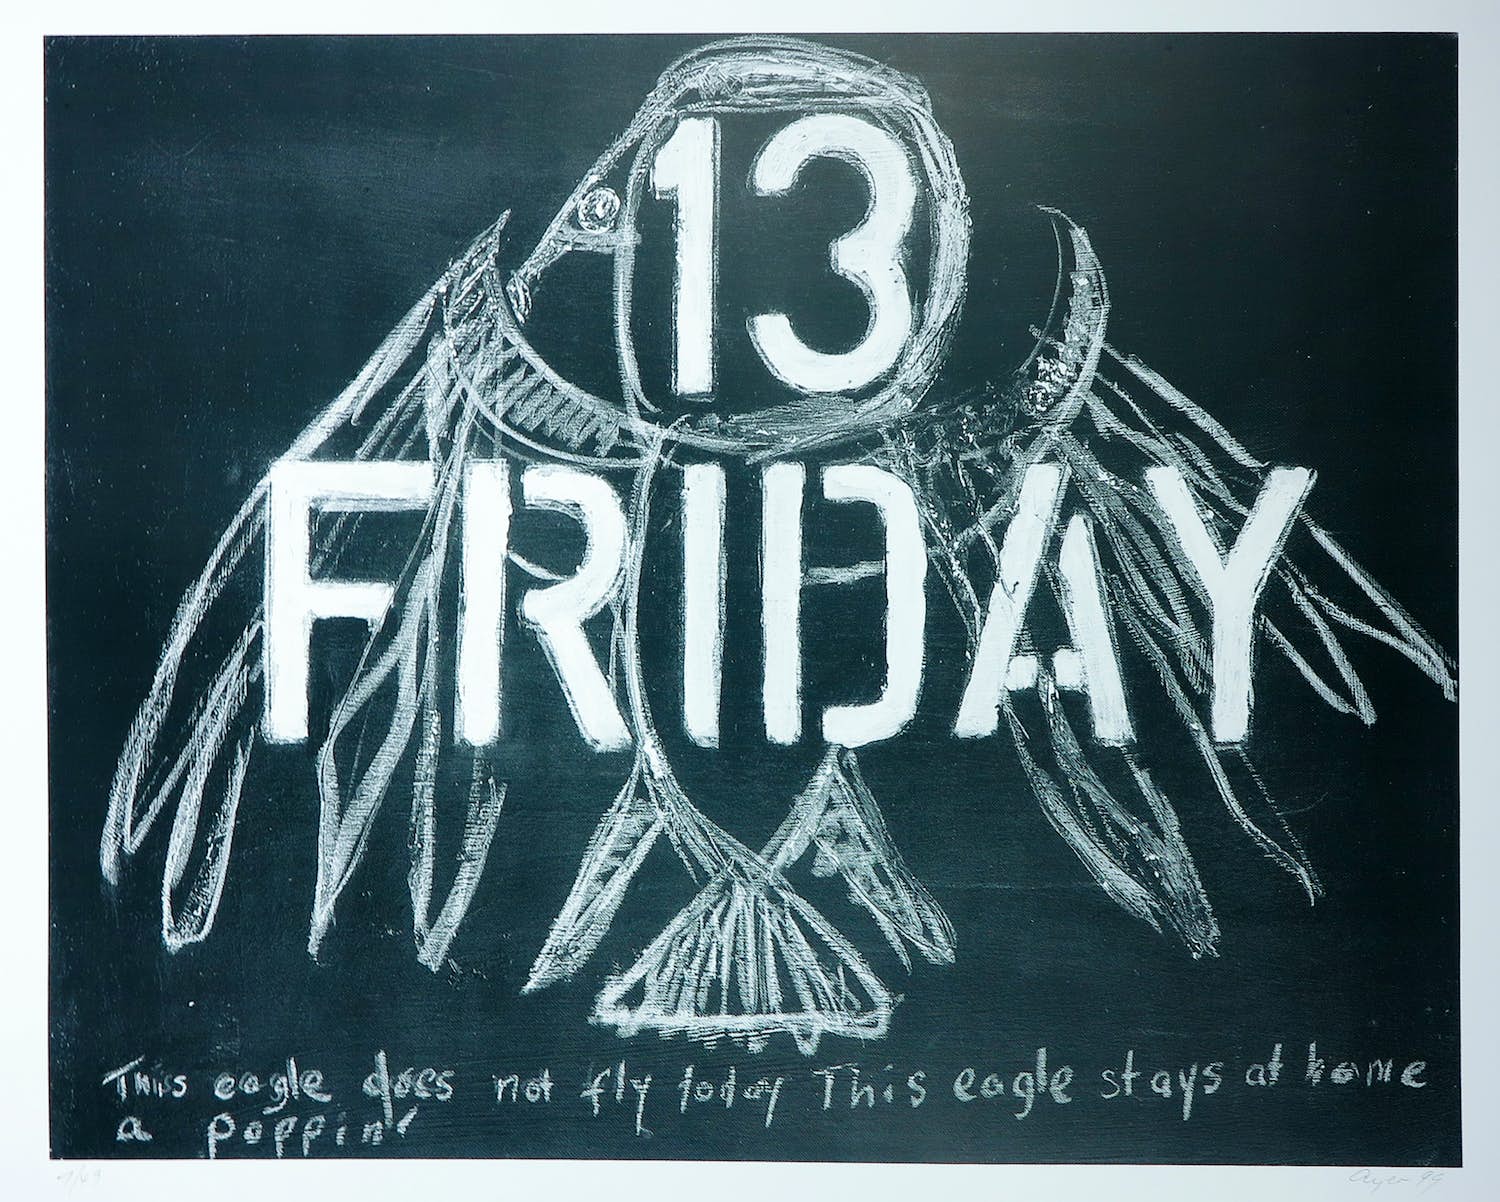 13
FRIDAY
This eagle does not fly today This eagle stays at home
a poppin'